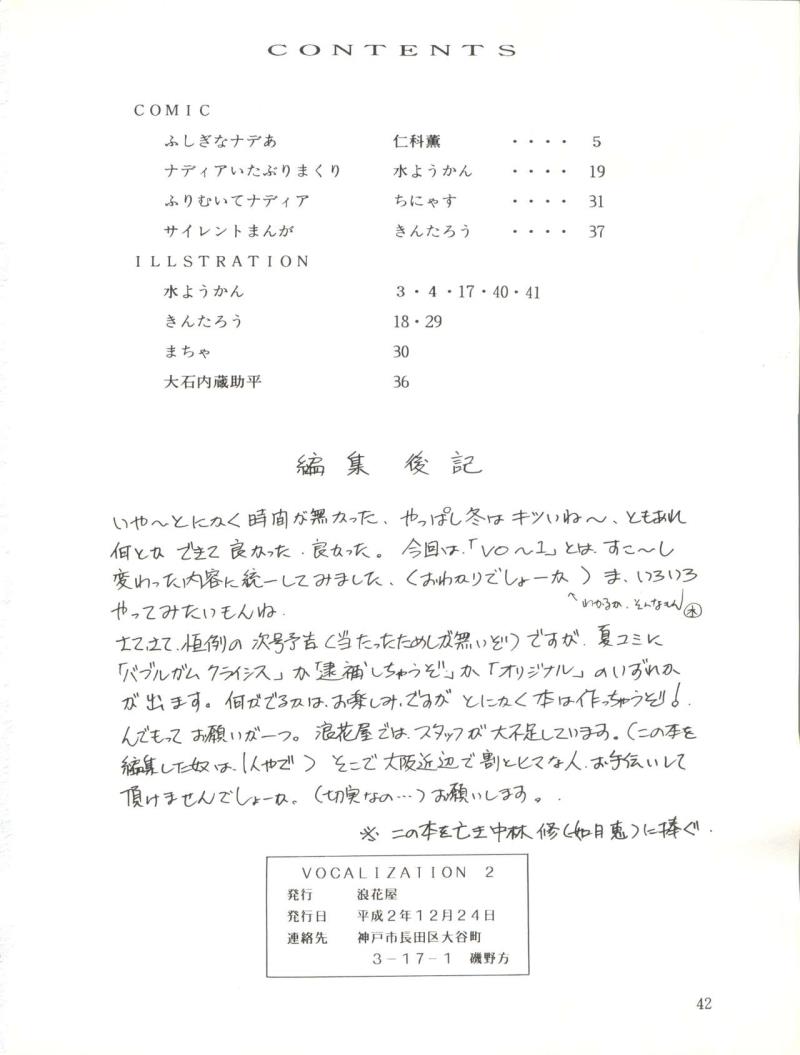 CONTENTS
COMIC
ふしぎなナデあ 仁科薫 ････ 5
ナディアいたぶりまくり 水ようかん ････ 19
ふりむいてナディア ちにゃす ････ 31
サイレントまんが きんたろう ････ 37
ILLSTRATION
水ようかん 3・4・17・40・41
きんたろう 18・29
まちゃ 30
大石内蔵助平 36
編集後記
いや〜とにかく時間が無かった、やっぱし冬はキツいね〜、ともあれ
何とか できて 良かった、良かった。 今回は、「VO〜1」とは、すこ〜し
変わった内容に統一してみました、(おわかりでしょーか) ま、いろいろ
やってみたいもんね.
^わかるか、そんなもん! 水
さてさて、恒例の 次号予告(当たったためしが無いぞ)ですが、夏コミに
「バブルガム クライシス」か「逮捕しちゃうぞ」か「オリジナル」のいずれか
が出ます。何がでるかは、お楽しみ、ですが とにかく本は作っちゃうぞ!
んでもって お願いが一つ。 浪花屋では、スタッフが 大不足しています。(この本を
編集した奴は、1人やで) そこで 大阪近辺で割とヒマな人、お手伝いして
頂けませんでしょーか。(切実なの…)お願いします。.
※ この本を亡き中林 修(如月 恵)に捧ぐ.
VOCALIZATION 2
発行 浪花屋
発行日 平成2年12月24日
連絡先 神戸市長田区大谷町
3−17−1 磯野方
42